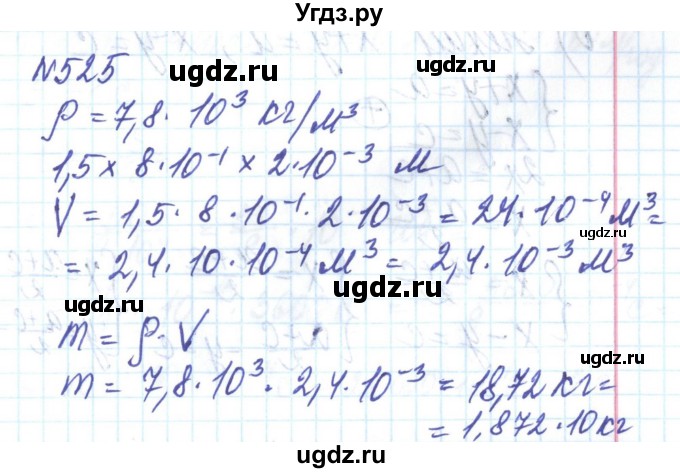 Угдз.ру
N525
ugdz.ru ugdz.ru
ρ = 7,8 · 10³ кг/м³
1,5 × 8·10⁻¹ × 2·10⁻³ м
ugdz.ru ugdz.ru
V = 1,5 · 8 · 10⁻¹ · 2·10⁻³ = 24·10⁻⁴ м³ =
ugdz.ru
= 2,4 · 10 · 10⁻⁴ м³ = 2,4·10⁻³ м³
ugdz.ru ugdz.ru
m = ρ · V
ugdz.ru
m = 7,8·10³ · 2,4·10⁻³ = 18,72 кг =
= 1,872·10 кг
ugdz.ru ugdz.ru